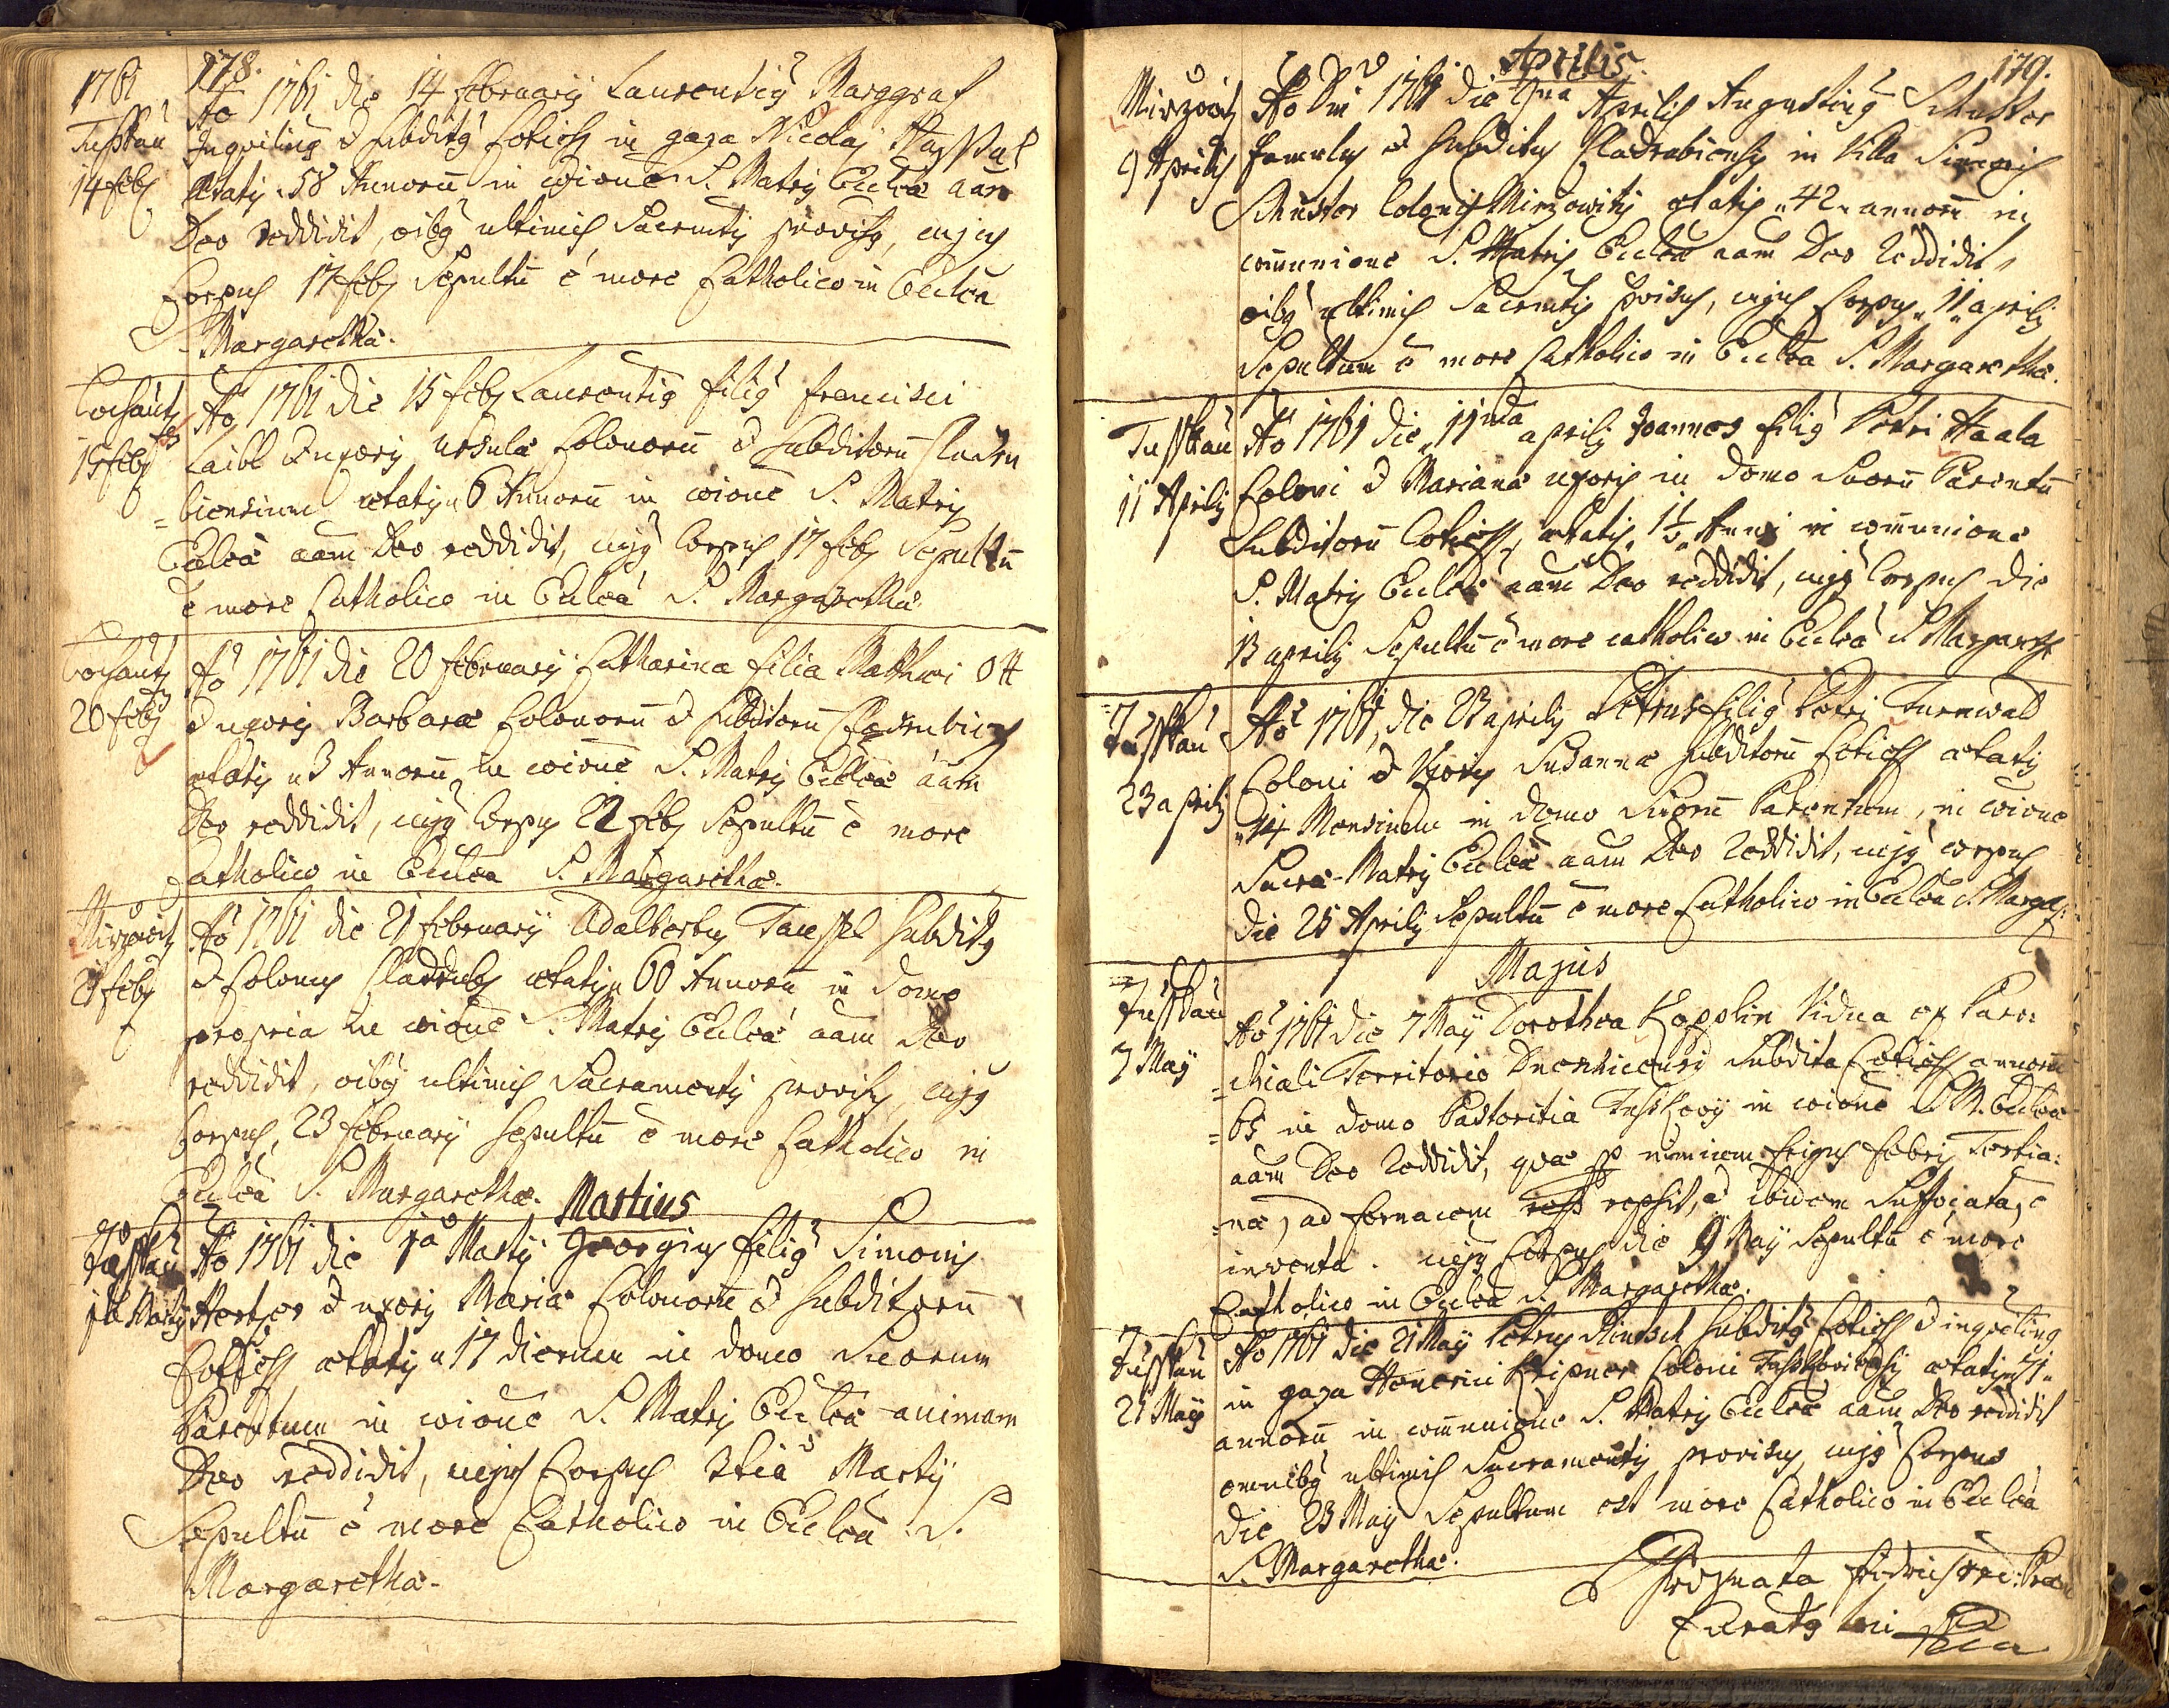 178.
1761
Tuschkau
14 Feb
Ao 1761 die 14 februarij Laurentiy Marggraf
Inquilinus et subditg Cotich in gaza Nicolaj
ætatis 58 Annorū in coione S. Matris Ecclæ aām
Deo reddidit, oibg ultimis Sacrmtis provisg, cujus
Corpus 17 feb Sepultū ē more Catholico in Ecclia
S. Margarethæ.
15 feb
Ao 1761 die 15 feb Laurentig filig Francisci
Laibl et uxoris Ursulæ Colonorū et subditorū Cladru
=biensium ætatis 6 Annorū in coione S. Matris
Ecclæ aam Deo reddidit, cujg Corpus 17 feb Sepultū
ē more Catholico in Ecclia S. Margarethæ.
20 feb
Ao 1761 die 20 februarij Catharina filia Mathæi Ott
et uxoris Barbaræ Colonorū et subditorū Cladrubien
ætatis 3 Annorū in coione S. Matris Ecclæ aam
Deo reddidit, cujg Corpus 22 feb Sepultū ē more
Catholico in Ecclia S. Margarethæ.
Mirzowitz
21 feb
Ao 1761 die 21 februarij Adalbertus subditg
et Colonus Cladrub ætatis 60 Annorū in domo
propria in coione S. Matris Ecclæ aam Deo
reddidit, oibg ultimis Sacramentis provisus, cujg
Corpus, 23 februarij Sepultū ē more Catholico in
Ecclia S. Margarethæ.
Martius
Tuschkau
1a Martij
Ao 1761 die 1a Martij Georgius filig Simonis
et uxoris Mariæ Colonorū et subditorū
Cotich ætatis 17 dierum in domo Suorum
Parentum in coione S. Matris Ecclæ animam
Deo reddidit, cujus Corpus 3tia Martij
Sepultū ē more Catholico in Ecclia S.
Margarethæ.
179.
Aprilis
Mirzowitz
9 Aprilis
Ao Dni 1761 die 9na Aprilis Augusting Schuster
famulus et subditus Cladrubiensis in Villa Simonis
Schuster Coloni Mirzowitz ætatis 42 annorū in
communione S. Matris Ecclæ aam Deo reddidit,
oibg ultimis Sacrmtis provisus, cujus Corpus 11 aprilis
Sepultum ē more Catholico in Ecclia S. Margarethæ.
Tuschkau
11 Aprilis
Ao 1761 die 11ma aprilis Joannes filig Petri Haala
Coloni et Marianæ uxoris in domo Suorū Parentū
Subditorū Cotich, ætatis 1½ Anni in communione
S. Matris Ecclæ aam Deo reddidit, cujg Corpus die
13 aprilis Sepultū ē more catholico in Ecclia S. Margareth
Tuschkau
23 aprilis
Ao 1761, die 23 aprilis Petrus filig Petri Turnwald
Coloni et Uxoris Susannæ Subditorū Cotich ætatis
14 Mensium in domo Suorū Parentum, in coione
Sacræ Matris Ecclæ aam Deo reddidit, cujg corpus
die 25 Aprilis Sepultū ē more Catholico in Ecclia S. Marga:
Majus
Tuschkau
7 Maij
Ao 1761 die 7 Maij Dorothea Kopplin Vidua ex Paro
=chiali Territorio Subdita Cotich annorū
=65 in domo Pastoritia Tuschkovij in coione S. M. Ecclæ
aam Deo reddidit, quæ per nimium frigus febris Tertia:
=næ, ad fornacem repsit, et ibidem Suffocata, ē
inventa. cujg Corpus die 9 Maij Sepultū ē more
Catholico in Ecclia S. Margarethæ.
Tuschkau
21 Maij
Ao 1761 die 21 Maij Petrus subditg Cotich et inquiling
in gaza Coloni Tuschkoviensis ætatis 71
annorū in communione S. Matris Ecclæ aam Deo reddidit
omnibg ultimis Sacramentis provisus, cujg Corpus
die 23 Maij Sepultum est more Catholico in Ecclia
S. Margarethæ.